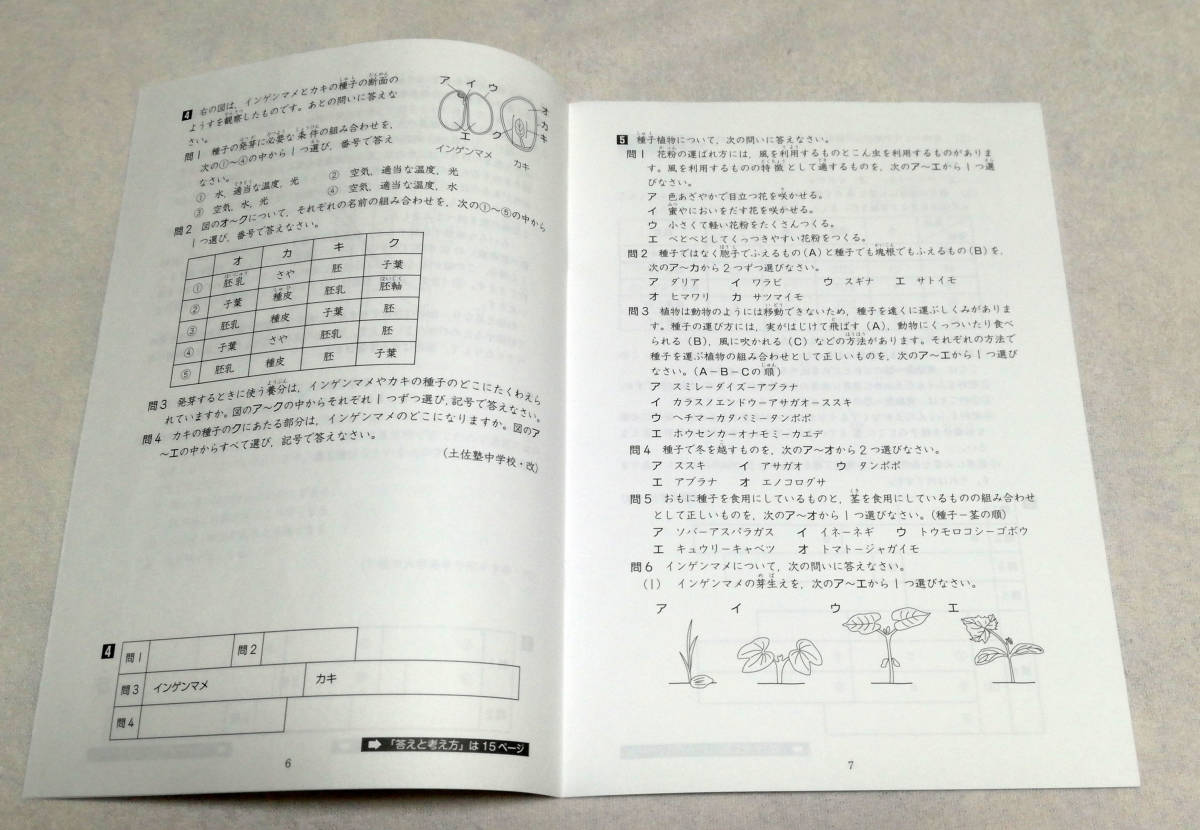 4 右の図は、インゲンマメとカキの種子の断面の
ようすを観察したものです。あとの問いに答えな
さい。
問1 種子の発芽に必要な条件の組み合わせを、
次の①~④の中から1つ選び、番号で答え
なさい。
① 水、適当な温度、光 ② 空気、適当な温度、光
③ 空気、水、光 ④ 空気、適当な温度、水
ア イ ウ
エ
インゲンマメ
オ
カ
キ
ク
カキ
問2 図のオ~クについて、それぞれの名前の組み合わせを、次の①~⑤の中から
1つ選び、番号で答えなさい。
オ カ キ ク
① 胚乳 さや 胚 子葉
② 子葉 種皮 胚乳 胚軸
③ 胚乳 種皮 子葉 胚
④ 子葉 さや 胚乳 胚
⑤ 胚乳 種皮 胚 子葉
問3 発芽するときに使う養分は、インゲンマメやカキの種子のどこにたくわえら
れていますか。図のア~クの中からそれぞれ1つずつ選び、記号で答えなさい。
問4 カキの種子のクにあたる部分は、インゲンマメのどこになりますか。図のア
~エの中からすべて選び、記号で答えなさい。
(土佐塾中学校・改)
4 問1 問2
問3 インゲンマメ カキ
問4
➡ 「答えと考え方」は15ページ
6
5 種子植物について、次の問いに答えなさい。
問1 花粉の運ばれ方には、風を利用するものとこん虫を利用するものがありま
す。風を利用するものの特徴として適するものを、次のア~エから1つ選
びなさい。
ア 色あざやかで目立つ花を咲かせる。
イ 蜜やにおいをだす花を咲かせる。
ウ 小さくて軽い花粉をたくさんつくる。
エ べとべとしてくっつきやすい花粉をつくる。
問2 種子ではなく胞子でふえるもの(A)と種子でも塊根でもふえるもの(B)を、
次のア~カから2つずつ選びなさい。
ア ダリア イ ワラビ ウ スギナ エ サトイモ
オ ヒマワリ カ サツマイモ
問3 植物は動物のようには移動できないため、種子を遠くに運ぶしくみがありま
す。種子の運び方には、実がはじけて飛ばす(A)、動物にくっついたり食べ
られる(B)、風に吹かれる(C)などの方法があります。それぞれの方法で
種子を運ぶ植物の組み合わせとして正しいものを、次のア~エから1つ選び
なさい。(A-B-Cの順)
ア スミレーダイズーアブラナ
イ カラスノエンドウーアサガオーススキ
ウ ヘチマーカタバミータンポポ
エ ホウセンカーオナモミーカエデ
問4 種子で冬を越すものを、次のア~オから2つ選びなさい。
ア ススキ イ アサガオ ウ タンポポ
エ アブラナ オ エノコログサ
問5 おもに種子を食用にしているものと、茎を食用にしているものの組み合わせ
として正しいものを、次のア~オから1つ選びなさい。(種子-茎の順)
ア ソバーアスパラガス イ イネーネギ ウ トウモロコシーゴボウ
エ キュウリーキャベツ オ トマトージャガイモ
問6 インゲンマメについて、次の問いに答えなさい。
(1) インゲンマメの芽生えを、次のア~エから1つ選びなさい。
ア イ ウ エ
7